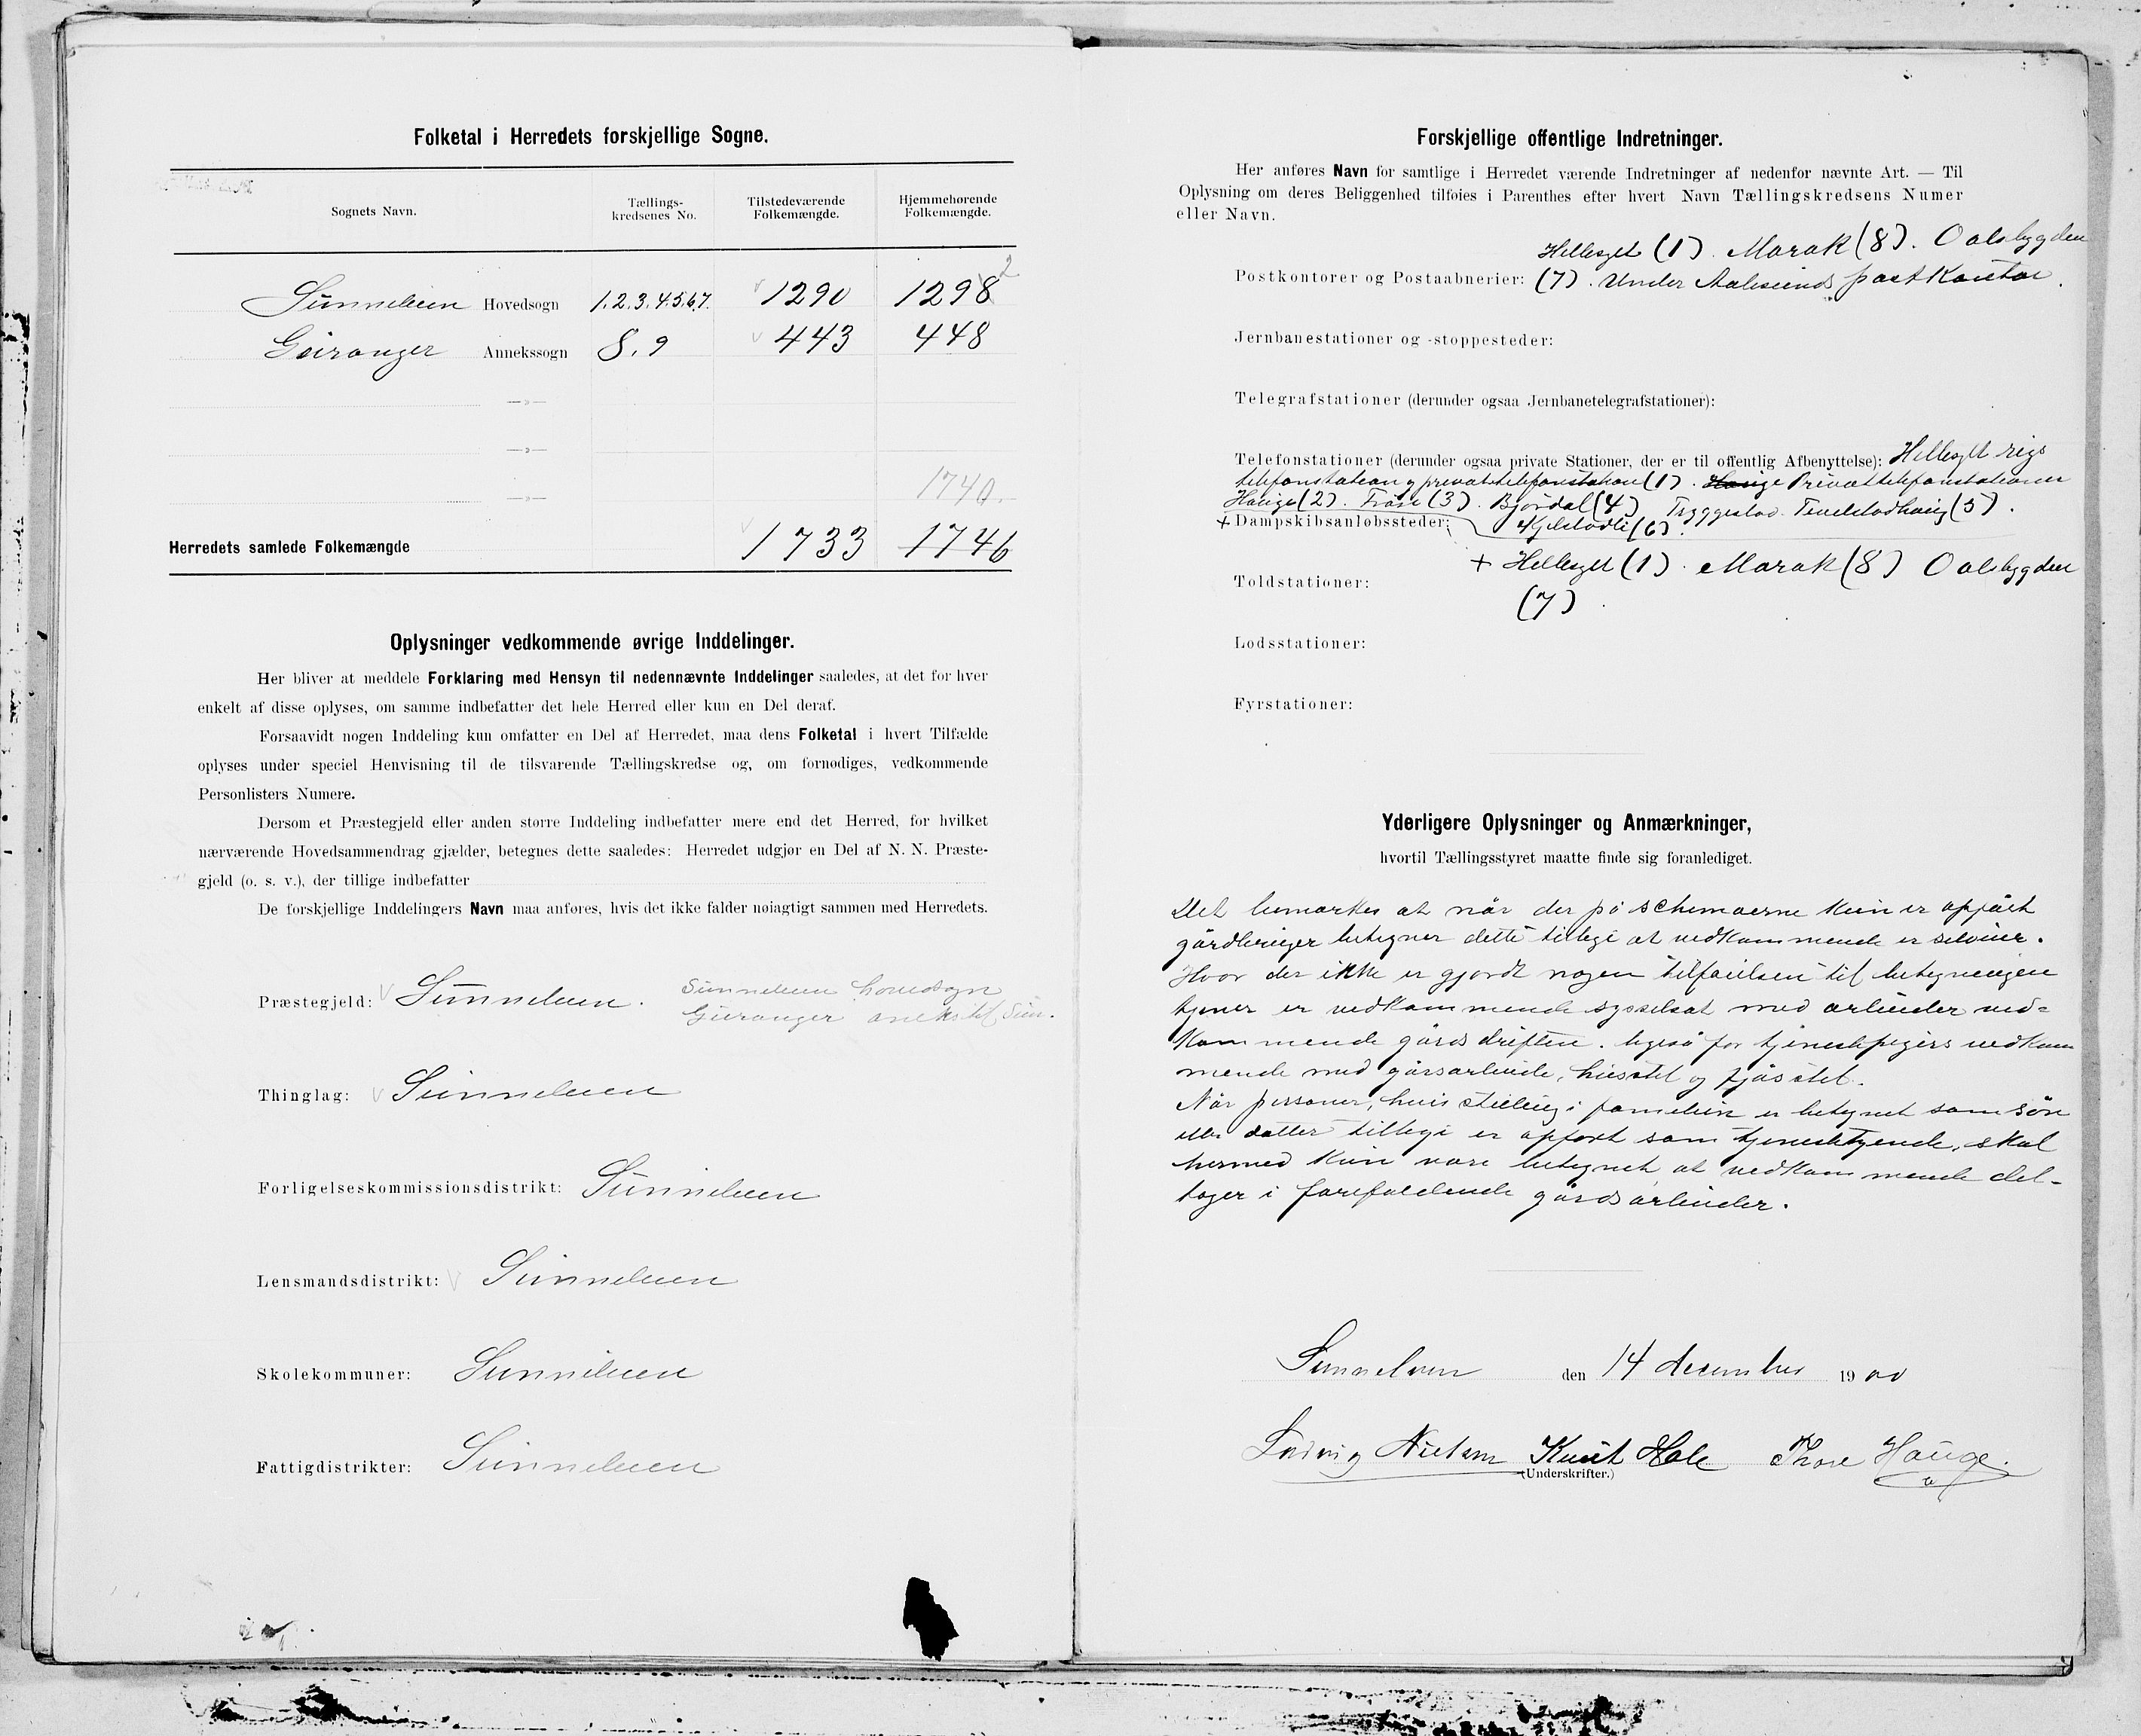 Folketal i Herredets forskjellige Sogne.
Sognets Navn.
Tællings-
kredsenes No.
Tilstedeværende
Folkemængde.
Hjemmehørende
Folkemængde.
Sunnelven Hovedsogn 1.2.3.4.5.6.7. 1290 1298 2
Geiranger Annekssogn 8.9 443 448
—»—
—»—
—»— 1740.
Herredets samlede Folkemængde 1733 1746
Oplysninger vedkommende øvrige Inddelinger.
Her bliver at meddele Forklaring med Hensyn til nedennævnte Inddelinger saaledes, at det for hver
enkelt af disse oplyses, om samme indbefatter det hele Herred eller kun en Del deraf.
Forsaavidt nogen Inddeling kun omfatter en Del af Herredet, maa dens Folketal i hvert Tilfælde
oplyses under speciel Henvisning til de tilsvarende Tællingskredse og, om fornødiges, vedkommende
Personlisters Numere.
Dersom et Præstegjeld eller anden større Inddeling indbefatter mere end det Herred, for hvilket
nærværende Hovedsammendrag gjælder, betegnes dette saaledes: Herredet udgjør en Del af N. N. Præste-
gjeld (o. s. v.), der tillige indbefatter
De forskjellige Inddelingers Navn maa anføres, hvis det ikke falder nøiagtigt sammen med Herredets.
Præstegjeld: Sunnelven. Sunnelven hovedsogn
Geiranger aneks til Sun.
Thinglag: Sunnelven
Forligelseskommissionsdistrikt: Sunnelven
Lensmandsdistrikt: Sunnelven
Skolekommuner: Sunnelven
Fattigdistrikter: Sunnelven
Forskjellige offentlige Indretninger.
Her anføres Navn for samtlige i Herredet værende Indretninger af nedenfor nævnte Art. — Til
Oplysning om deres Beliggenhed tilføies i Parenthes efter hvert Navn Tællingskredsens Numer
eller Navn.
Hellesylt (1). Marak (8). Oalsbygden
Postkontorer og Postaabnerier: (7). Under Aalesunds postkontor.
Jernbanestationer og -stoppesteder:
Telegrafstationer (derunder ogsaa Jernbanetelegrafstationer):
Telefonstationer (derunder ogsaa private Stationer, der er til offentlig Afbenyttelse): Hellesylt rigs
telefonstation og privattelefonstation (1). Hauge Privattelefonstationer
Hauge (2). Frøse (3). Bjørdal (4) Tryggestad (5).
+ Dampskibsanløbssteder: Kjelstadli (6).
+ Hellesylt (1). Marak (8) Oalsbygden
Toldstationer:
(7).
Lodsstationer:
Fyrstationer:
Yderligere Oplysninger og Anmærkninger,
hvortil Tællingsstyret maatte finde sig foranlediget.
Det bemærkes at når der på schemaerne kun er opført
gårdbruger betegner dette tillige at vedkommende er selveier.
Hvor der ikke er gjordt nogen tilføielsen til betegnelsen
tjener er vedkommende sysselsat med arbeider ved=
kommende gårdsdriften. ligeså for tjenestepigers vedkom
mende med gårsarbeide, husstel og fjøsstel.
Når personer, hvis stilling i familien er betegnet som søn
eller datter tillige er opført som tjenestetyende, skal
hermed kun være betegnet at vedkommende del-
tager i forefaldende gårdsarbeider.
Sunnelven den 14 december 1900
Ludvig Nielsen Knut Hole Thore Hauge.
(Underskrifter.)